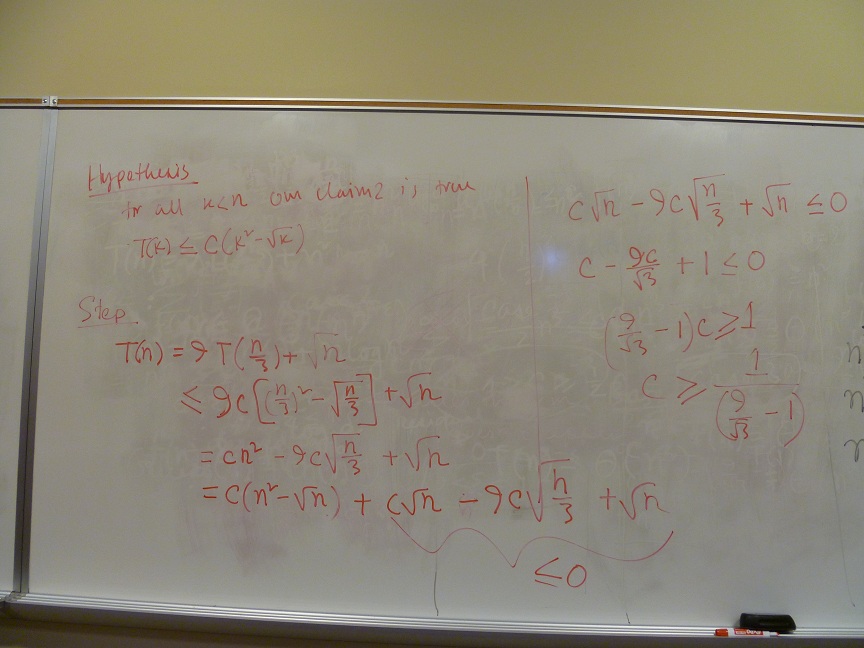 Hypothesis
for all k<n our claim2 is true
T(k) ≤ C(k² - √k)
Step
T(n) = 9 T(n/3) + √n
≤ 9c[(n/3)² - √(n/3)] + √n
= cn² - 9c√(n/3) + √n
= C(n² - √n) + c√n - 9c√(n/3) + √n
≤ 0
c√n - 9c√(n/3) + √n ≤ 0
c - 9c/√3 + 1 ≤ 0
(9/√3 - 1)c ≥ 1
c ≥ 1/(9/√3 - 1)
n
n